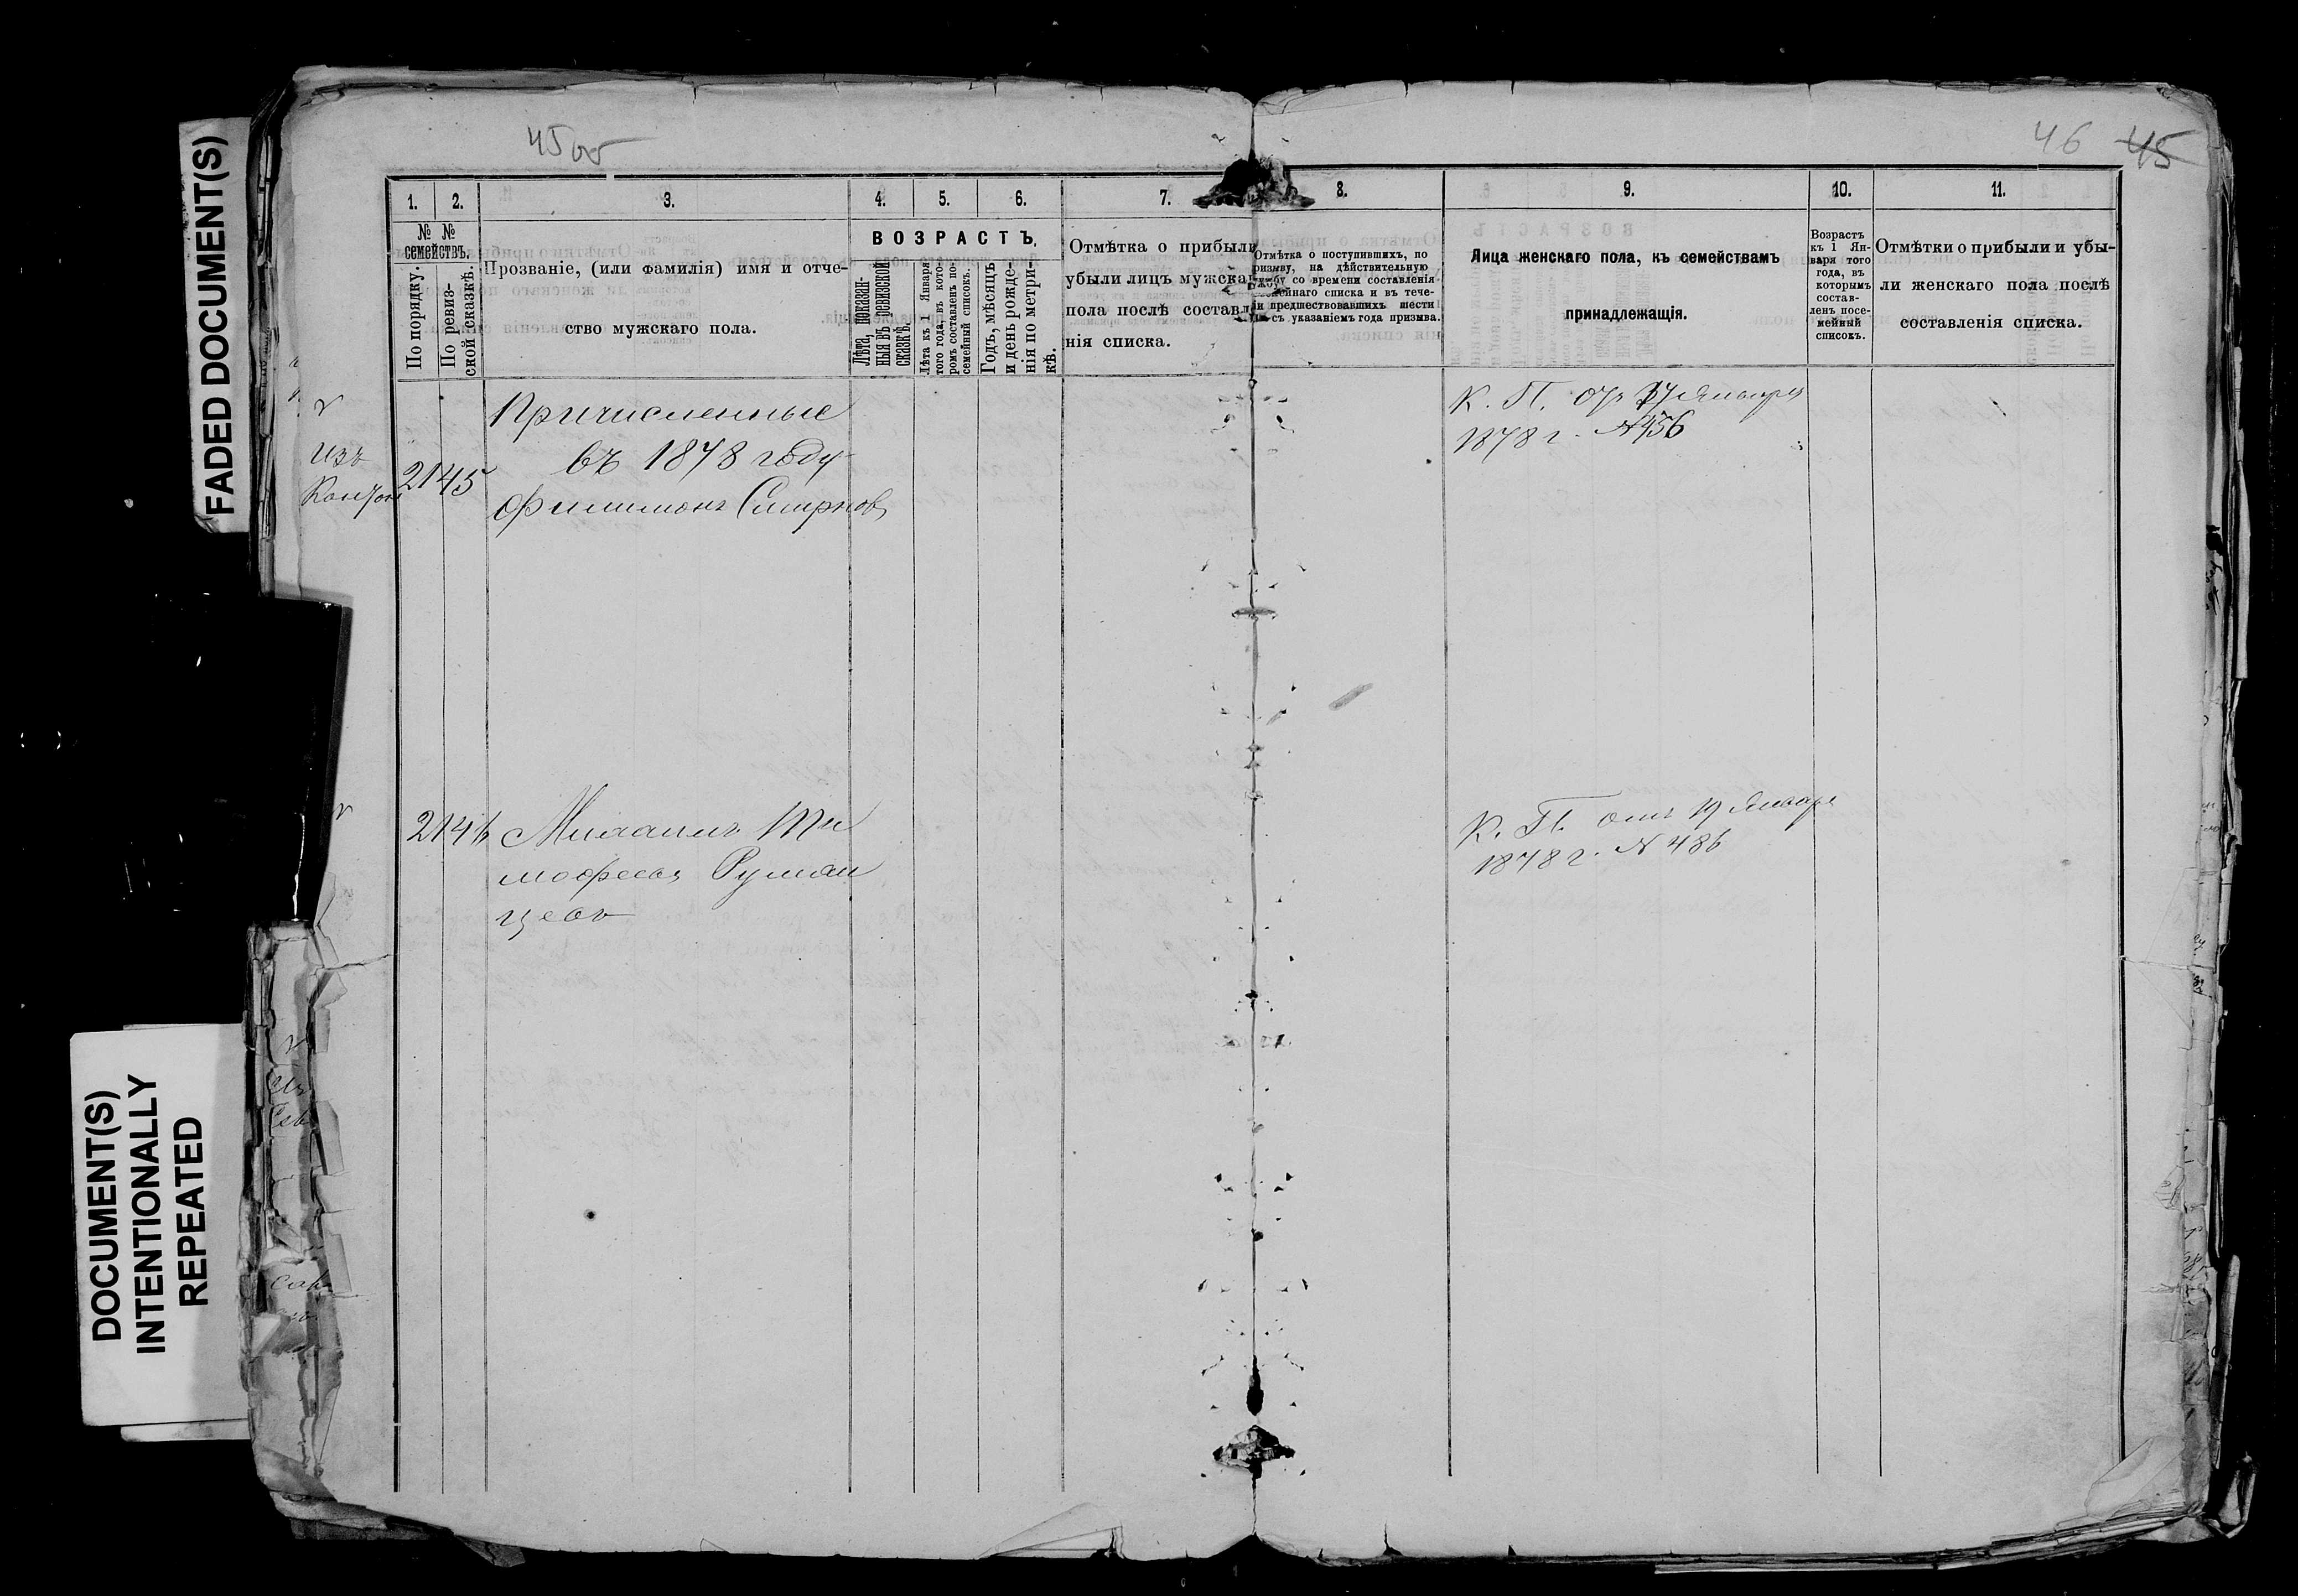 FADED DOCUMENT(S)
DOCUMENT(S)
INTENTIONALLY
REPEATED
45об
46 45
1. 2. 3. 4. 5. 6. 7. 8. 9. 10. 11.
№ №
семействъ.
По порядку.
По ревиз-
ской сказкѣ.
Прозваніе, (или фамилія) имя и отче-
ство мужскаго пола.
ВОЗРАСТЪ.
Лѣта, показан-
ныя въ ревизской
сказкѣ.
Лѣта къ 1 Января
того года, въ кото-
ромъ составленъ по-
семейный списокъ.
Годъ, мѣсяцъ
и день рожде-
нія по метри-
кѣ.
Отмѣтка о прибыли
убыли лицъ мужска
пола послѣ составл
нія списка.
Отмѣтка о поступившихъ, по
ризыву, на дѣйствительную
жбу со времени составленія
мейнаго списка и въ тече-
и предшествовавшихъ шести
съ указаніемъ года призыва.
Лица женскаго пола, къ семействамъ
принадлежащія.
Возрастъ
къ 1 Ян-
варя того
года, въ
которымъ
состав-
ленъ посе-
мейный
списокъ.
Отмѣтки о прибыли и убы-
ли женскаго пола послѣ
составленія списка.
Причисленные
въ 1878 году
изъ
2145
Филимонъ Смирновъ
К. П. отъ 17 Января
1878 г. № 456
2146 Михаилъ Ти
мофеевъ Румян
цевъ
К. П. отъ 19 Январ
1878 г. № 486